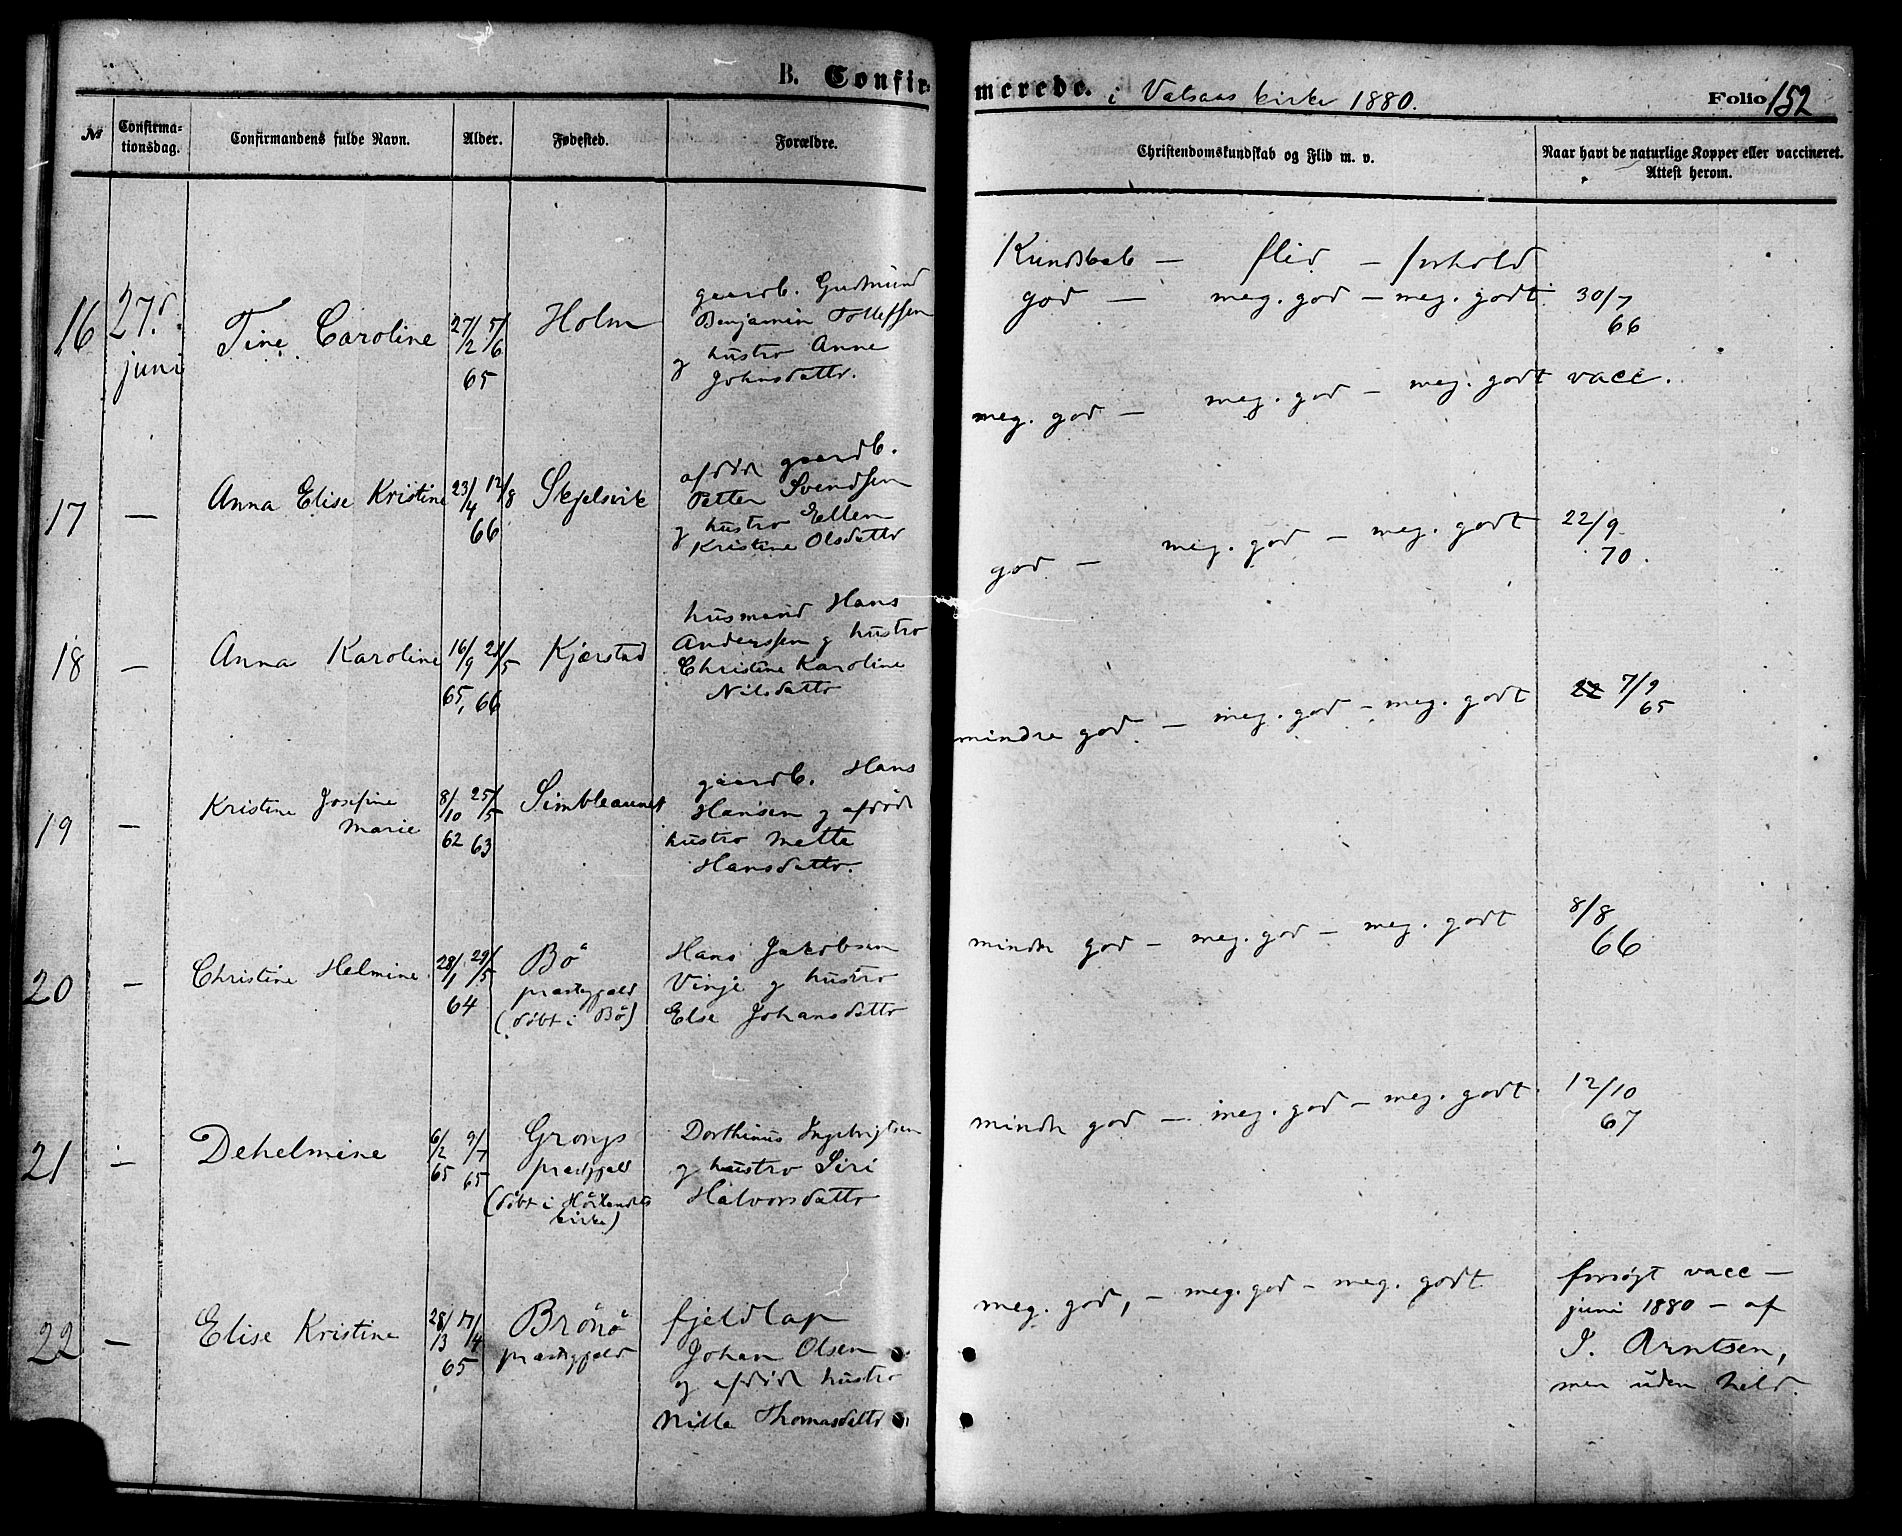 B. Confirmerede. i Valsaas kirke 1880. Folio 152
№ Confirmationsdag. Confirmandens fulde Navn. Alder. Fødested. Forældre. Christendomskundskab og Flid m. v. Naar havt de naturlige Kopper eller vaccineret. Attest herom.
Kundskab — flid — forhold
16 27d. juni
Tine Caroline
27/2 5/6
65
Holm
gaardb. Gudmund
Benjamin Tollefsen
og hustro Anne
Johnsdattr.
god — meg. god — meg. godt
30/7
66
17 —
Anna Elise Kristine
23/4 12/8
66
Skjelsvik
afdød gaardb.
Petter Svendsen
og hustro Ellen
Kristine Olsdattr
meg. god — meg. god — meg. godt
vacc.
18 —
Anna Karoline
16/9 21/5
65, 66
Kjærstad
husmand Hans
Anderssen og hustro
Christine Karoline
Nilsdattr
god — meg. god — meg. godt
22/9
70.
19 —
Kristine Josefine
Marie
8/10 25/5
62 63
Simbleaunet
gaardb. Hans
Hansen og afdød
hustro Mette
Hansdattr.
mindre god — meg. god — meg. godt
22 7/9
65
20 —
Christine Helmine
28/1 29/5
64
Bö
præstegjeld
(döbt i Bö)
Hans Jakobsen
Vinje og hustro
Else Johansdattr
mindre god — meg. god — meg. godt
8/8
66
21 —
Dehelmine
6/2 9/7
65 65
Grongs
præstgjeld
(döbt i Hölandets
kirke)
Dorthinus Ingebrigtsen
og hustro Siri
Halvorsdattr
mindre god — meg. god — meg. godt
12/10
67
22 —
Elise Kristine
28/3 17/4
65
Brönö
præstegjeld
fjeldlap
Johan Olsen
og afdød hustro
Nille Thomasdattr
meg. god, — meg. god — meg. godt
forsøgt vacc —
juni 1880 — af
J. Arntsen,
men uden held.